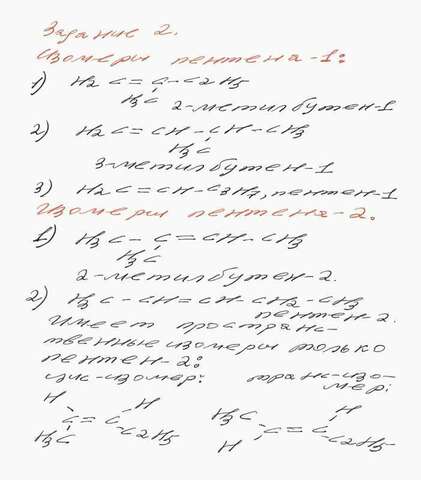 Задание 2.
Изомеры пентена-1:
1) H2C=C-C2H5
H3C
2-метилбутен-1
2) H2C=CH-CH-CH3
H3C
3-метилбутен-1
3) H2C=CH-C3H7, пентен-1
Изомеры пентена-2.
1) H3C-C=CH-CH3
H3C
2-метилбутен-2.
2) H3C-CH=CH-CH2-CH3
пентен-2.
Имеет простран-
ственные изомеры только
пентен-2:
цис-изомер: транс-изо-
мер:
H H H3C H
C=C C=C
H3C C2H5 H C2H5